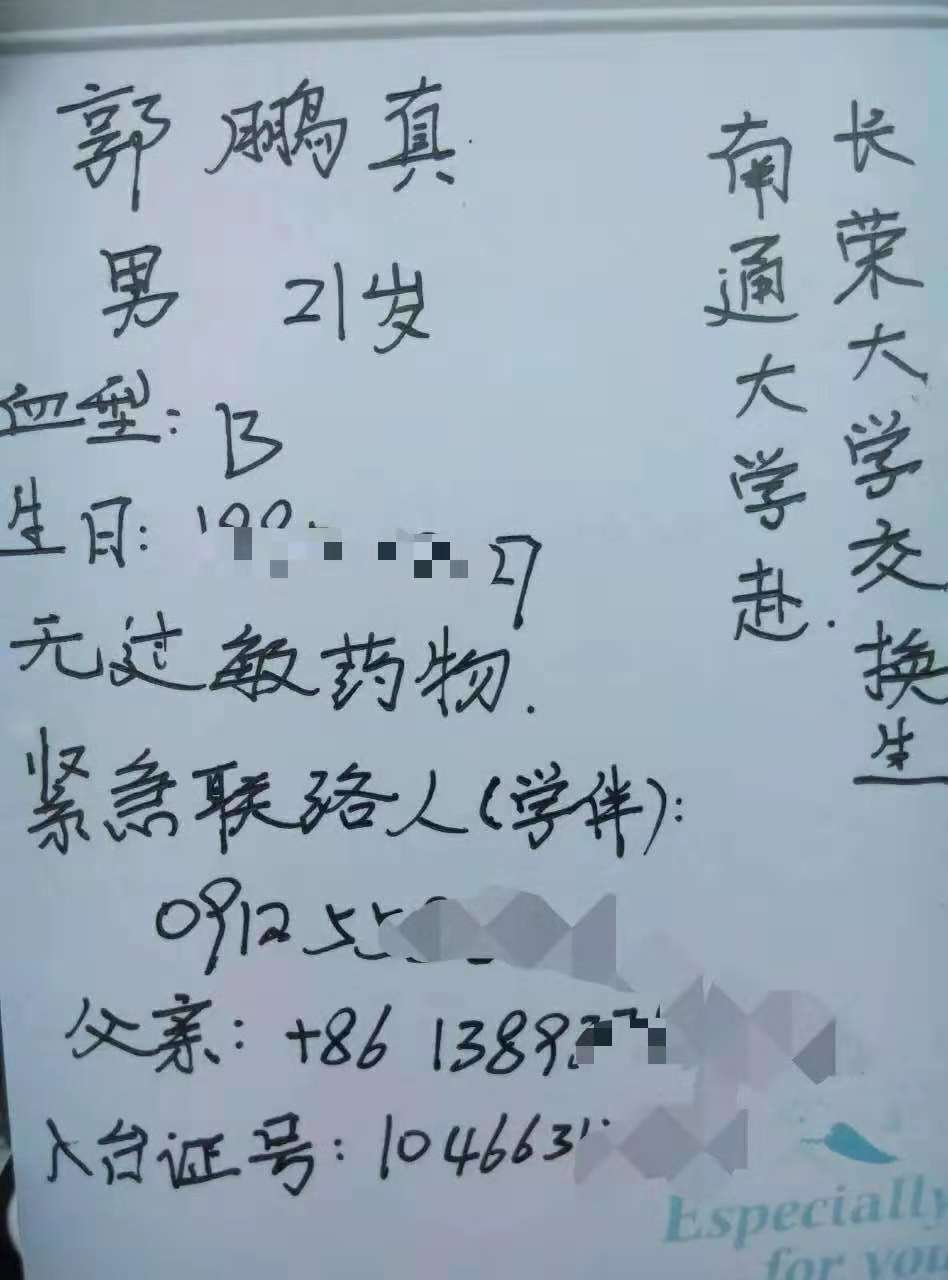 郭鹏真
男 21岁
血型: B
生日: 199 27
无过敏药物.
紧急联络人(学伴):
0912 55
父亲: +86 1389
入台证号: 104663
南通大学赴
长荣大学交换生
Especially
for you